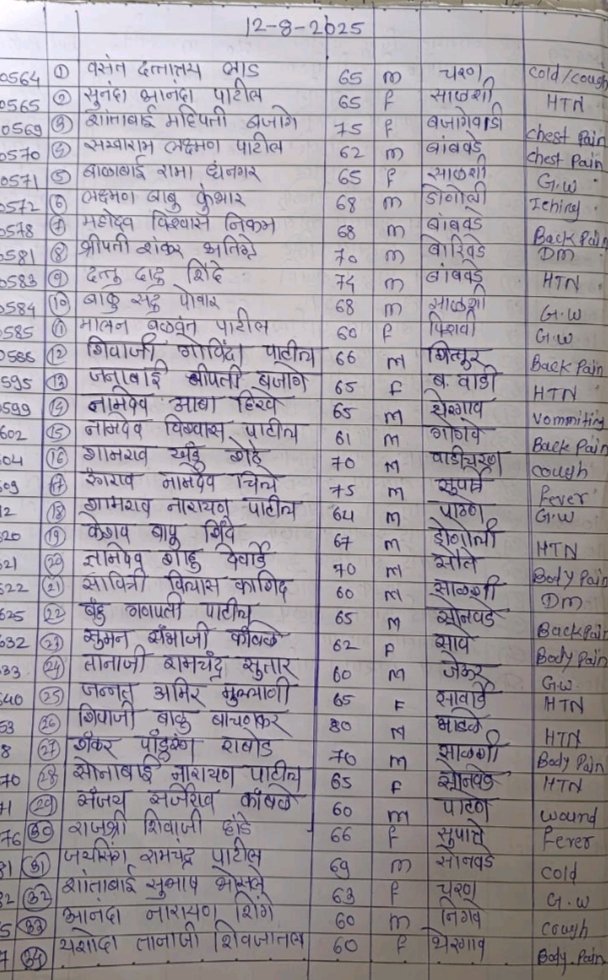 12-8-2025
0564 ① वसंत दत्तात्रय लाड 65 m चरण cold/cough
0565 ② सुनंदा आनंदा पाटील 65 f साळशी HTN
0569 ③ शांताबाई महिपती बजागे 75 f बजागेवाडी chest pain
0570 ④ सखाराम लक्ष्मण पाटील 62 m बांबवडे chest pain
0571 ⑤ बाळाबाई रामा धनगर 65 f साळशी G.W
0572 ⑥ लक्ष्मण बाबु कुंभार 68 m डोणोली Iching
0578 ⑦ महादेव विश्वास निकम 68 m बांबवडे Back Pain
0581 ⑧ श्रीपती शंकर 70 m DM
0583 ⑨ दत्तु दादु शिंदे 74 m बांबवडे HTN
0584 ⑩ बाळु सदु पोवार 68 m साळशी G.W
0585 ⑪ मालन बळवंत पाटील 60 f पिशवी G.W
0586 ⑫ शिवाजी गोविंदा पाटील 66 M शित्तूर Back Pain
0595 ⑬ जनाबाई श्रीपती बजागे 65 F ब. वाडी HTN
0599 ⑭ नामदेव आबा हिरवे 65 M थेरगाव vommiting
602 ⑮ नामदेव विश्वास पाटील 61 M गोगवे Back Pain
604 ⑯ शामराव खंडु 70 M वाडीचरण cough
609 ⑰ रंगराव नामदेव चिले 75 M सुपात्रे fever
12 ⑱ शामराव नारायण पाटील 64 M G.W
620 ⑲ केशव बापू शिंदे 67 M डोणोली HTN
621 ⑳ ज्ञानदेव देवार्डे 70 M सोते Body Pain
622 ㉑ सावित्री विलास कागिद 60 M साळशी DM
625 ㉒ बंडु गणपती पाटील 65 M सोनवडे Backpain
632 ㉓ सुमन संभाजी कांबळे 62 F सावे Body Pain
633 ㉔ तानाजी रामचंद्र सुतार 60 M G.W
640 ㉕ जन्नत अमिर मुल्लाणी 65 F सावर्डे HTN
53 ㉖ शिवाजी बाळु बाचणकर 80 M भाडळे HTN
8 ㉗ शंकर पांडुरंग राबोड 70 M साळशी Body Pain
70 ㉘ सोनाबाई नारायण पाटील 65 F सोनवडे HTN
71 ㉙ संजय सर्जेराव कांबळे 60 M wound
76 ㉚ राजश्री शिवाजी हांडे 66 f सुपात्रे Fever
81 ㉛ जयसिंग रामचंद्र पाटील 69 m सोनवडे cold
82 ㉜ शांताबाई सुभाष भोसले 63 f चरण G.W
5 ㉝ आनंदा नारायण शिंगे 60 m निगवे cough
7 ㉞ यशोदा तानाजी 60 f थेरगाव Body Pain